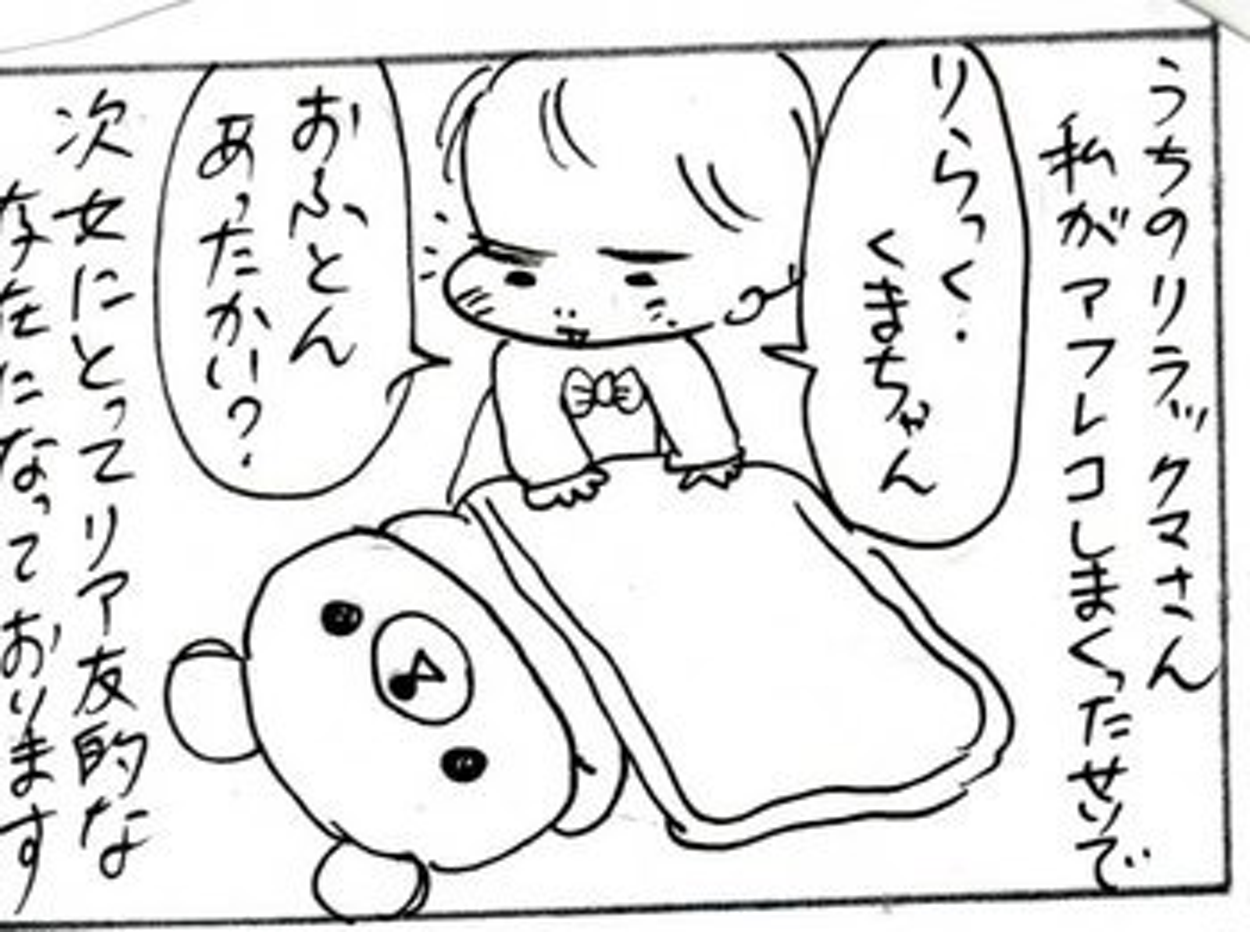 うちのリラックマさん
私がアフレコしまくったせいで
りらっく.
くまちゃん
おふとん
あったかい?
次女にとってリア友的な
存在になっております